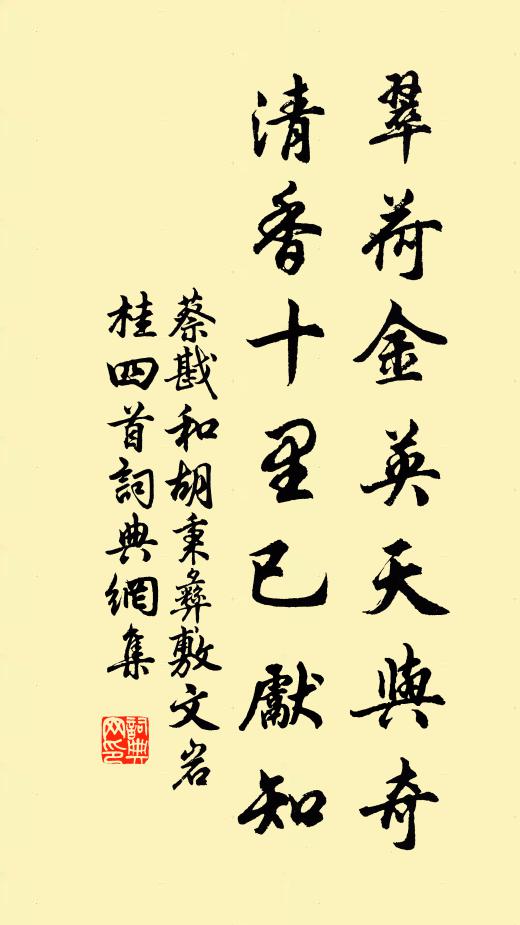 翠荷金英天與奇
清香十里已獻知
蔡戡和胡秉彝敷文岩
桂四首詞典網集
詞典
网印